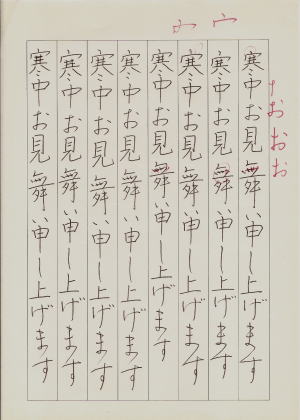 寒中お見舞い申し上げます
寒中お見舞い申し上げます
寒中お見舞い申し上げます
寒中お見舞い申し上げます
寒中お見舞い申し上げます
寒中お見舞い申し上げます
寒中お見舞い申し上げます
寒中お見舞い申し上げます
おおお